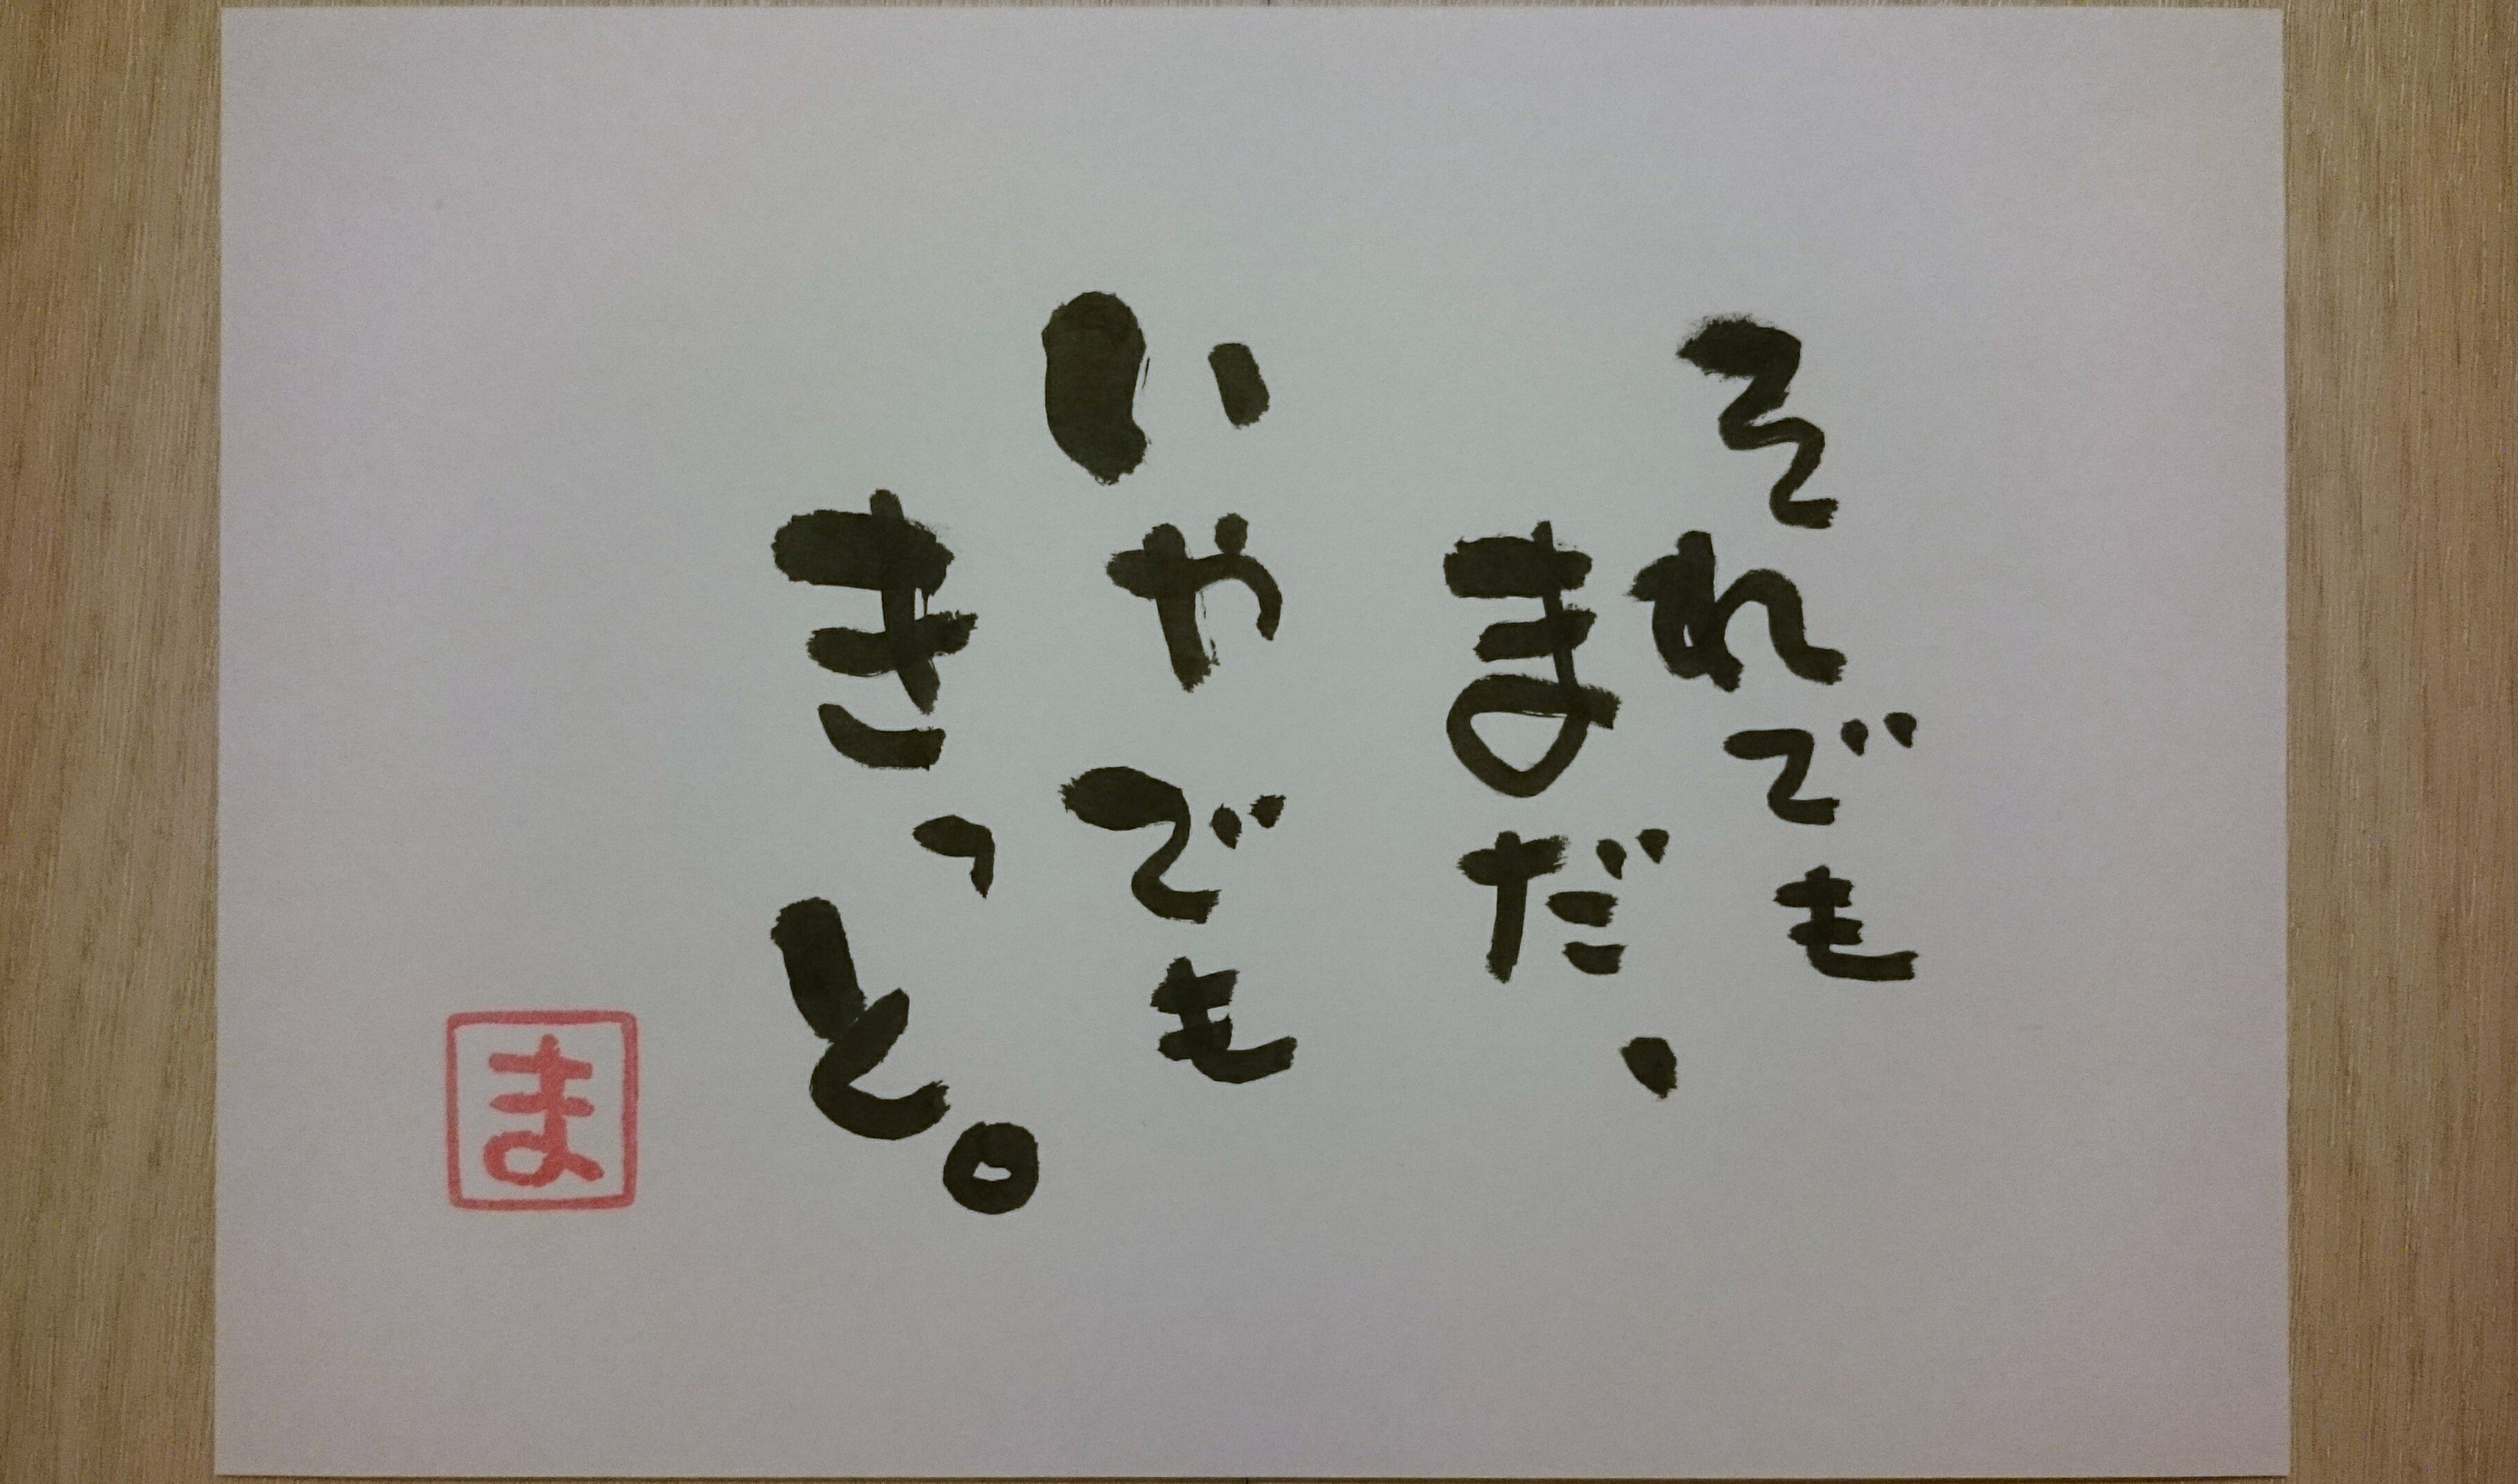 それでも
まだ、
いやでも
きっと。
ま